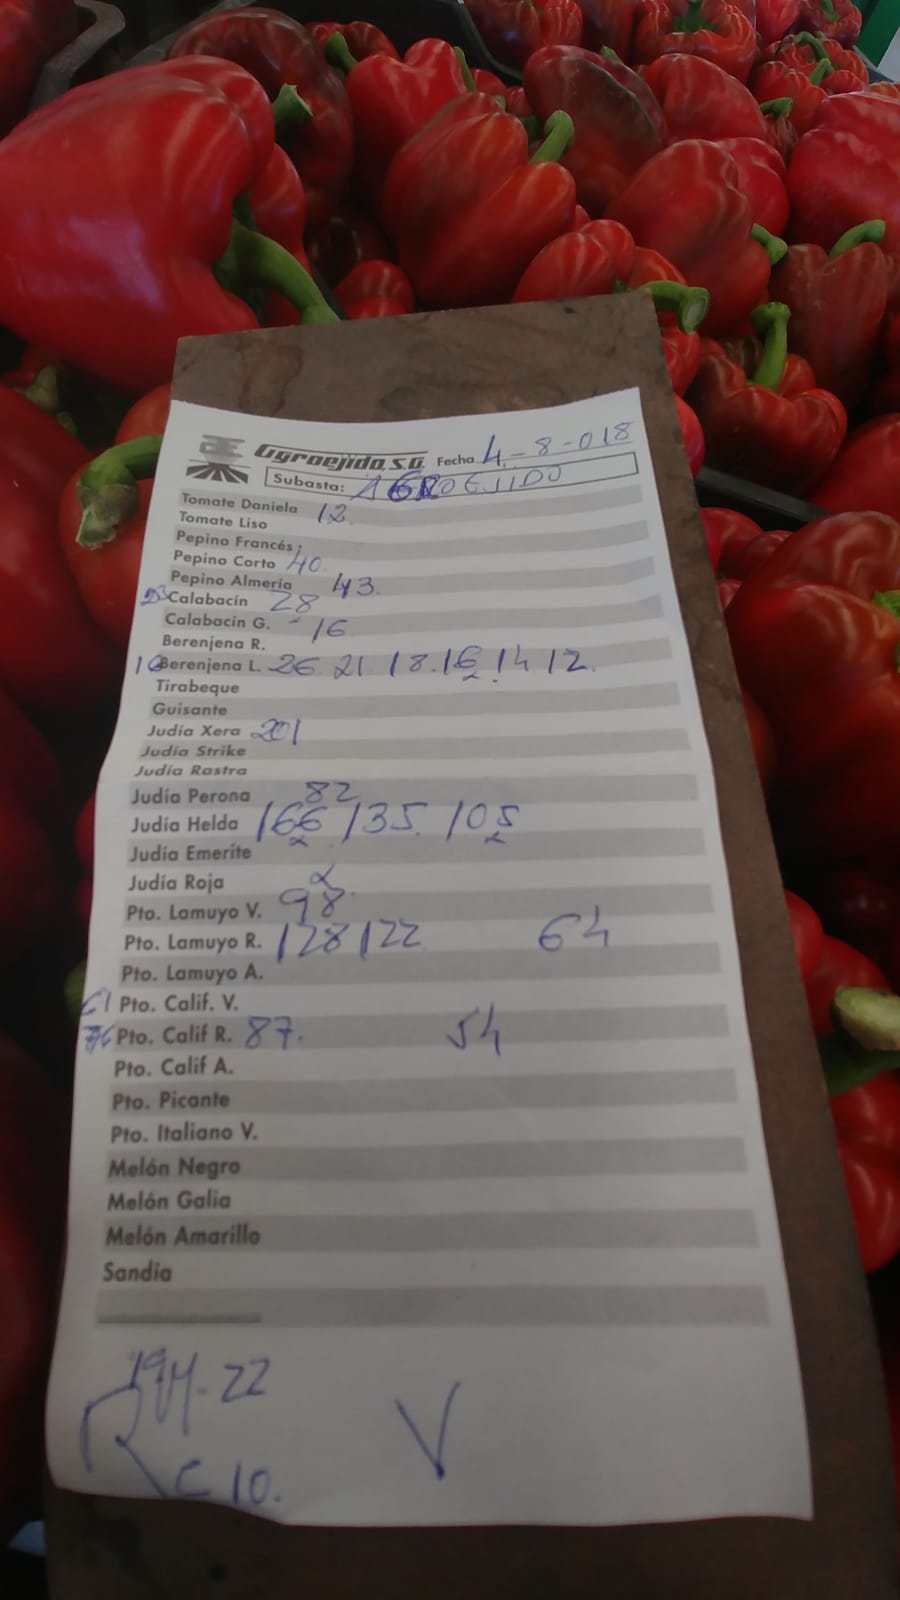 Agroejido, S.G. Fecha 4-8-018
Subasta: AGROEJIDO
Tomate Daniela 12
Tomate Liso
Pepino Francés
Pepino Corto 40.
Pepino Almería 43.
Calabacín 28
Calabacín G. 16
Berenjena R.
16 Berenjena L. 26 21 18. 16 14 12.
Tirabeque
Guisante
Judía Xera 201
Judía Strike
Judía Rastra
Judía Perona 82
Judía Helda 166 135. 105
Judía Emerite
Judía Roja
Pto. Lamuyo V. 98
Pto. Lamuyo R. 128 122 64
Pto. Lamuyo A.
61 Pto. Calif. V.
76 Pto. Calif R. 87. 54
Pto. Calif A.
Pto. Picante
Pto. Italiano V.
Melón Negro
Melón Galia
Melón Amarillo
Sandía
22 V
C 10.